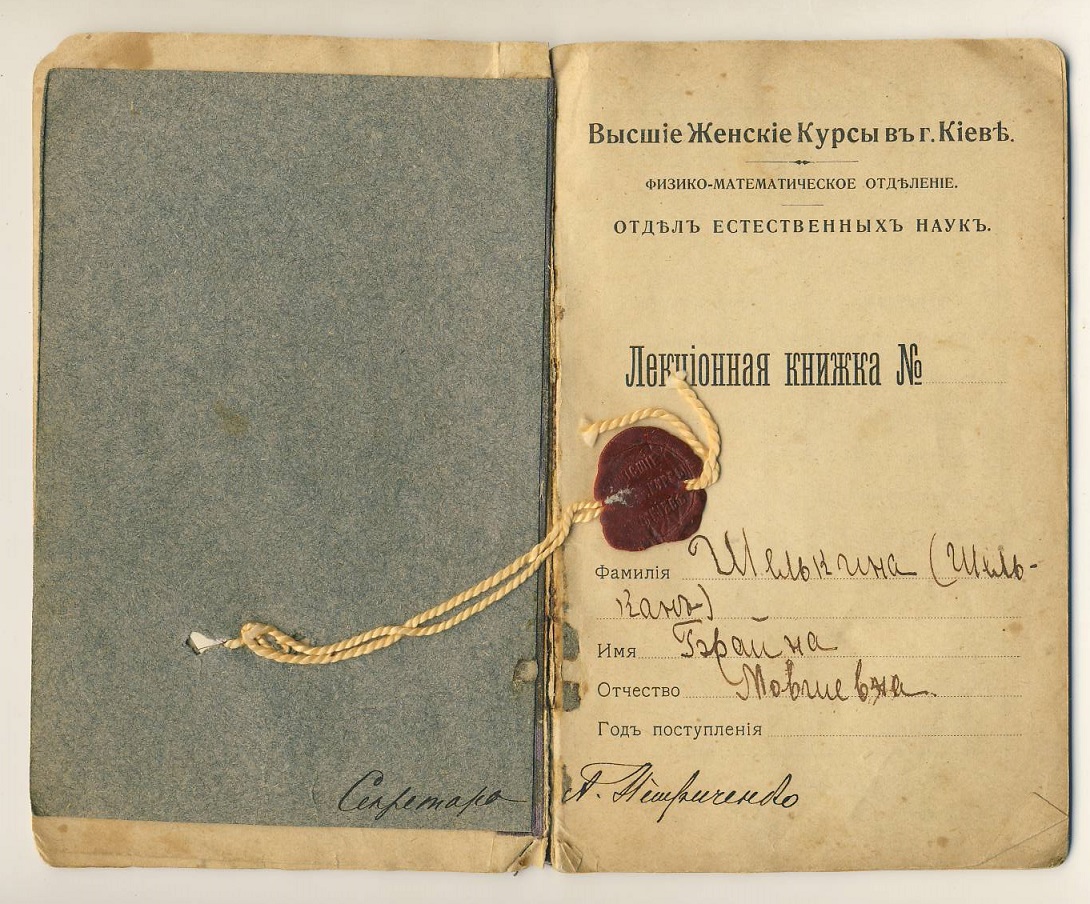 Высшіе Женскіе Курсы въ г. Кіевѣ.
ФИЗИКО-МАТЕМАТИЧЕСКОЕ ОТДѢЛЕНІЕ.
ОТДѢЛЪ ЕСТЕСТВЕННЫХЪ НАУКЪ.
Лекціонная книжка №
Фамилія Шелькина (Шель-
канъ)
Имя
Отчество Мовшевна
Годъ поступленія
Секретарь А. Петриченко